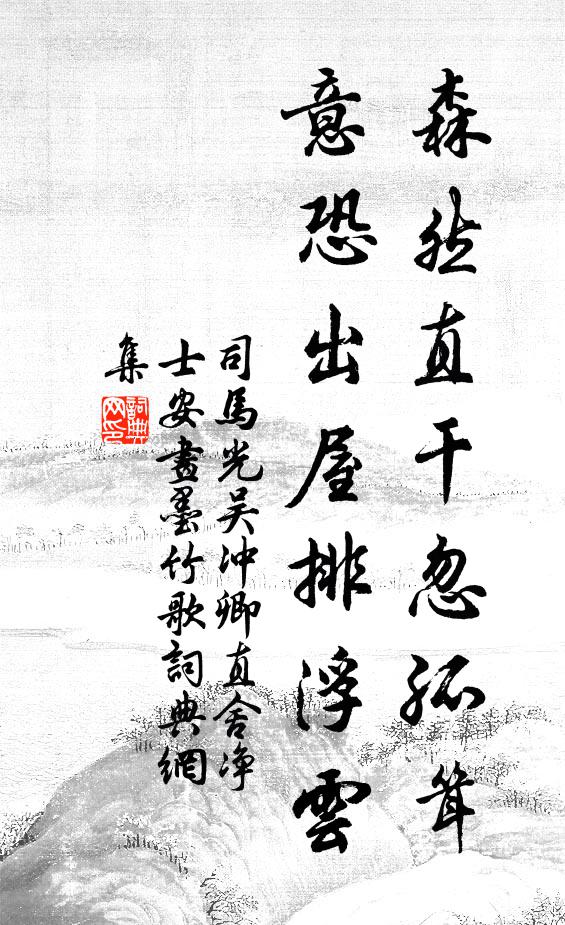 森然直干忽孤耸
意恐出屋排浮雲
司馬光吴冲卿直舍净
士安畫墨竹歌詞典網
集
詞典網印